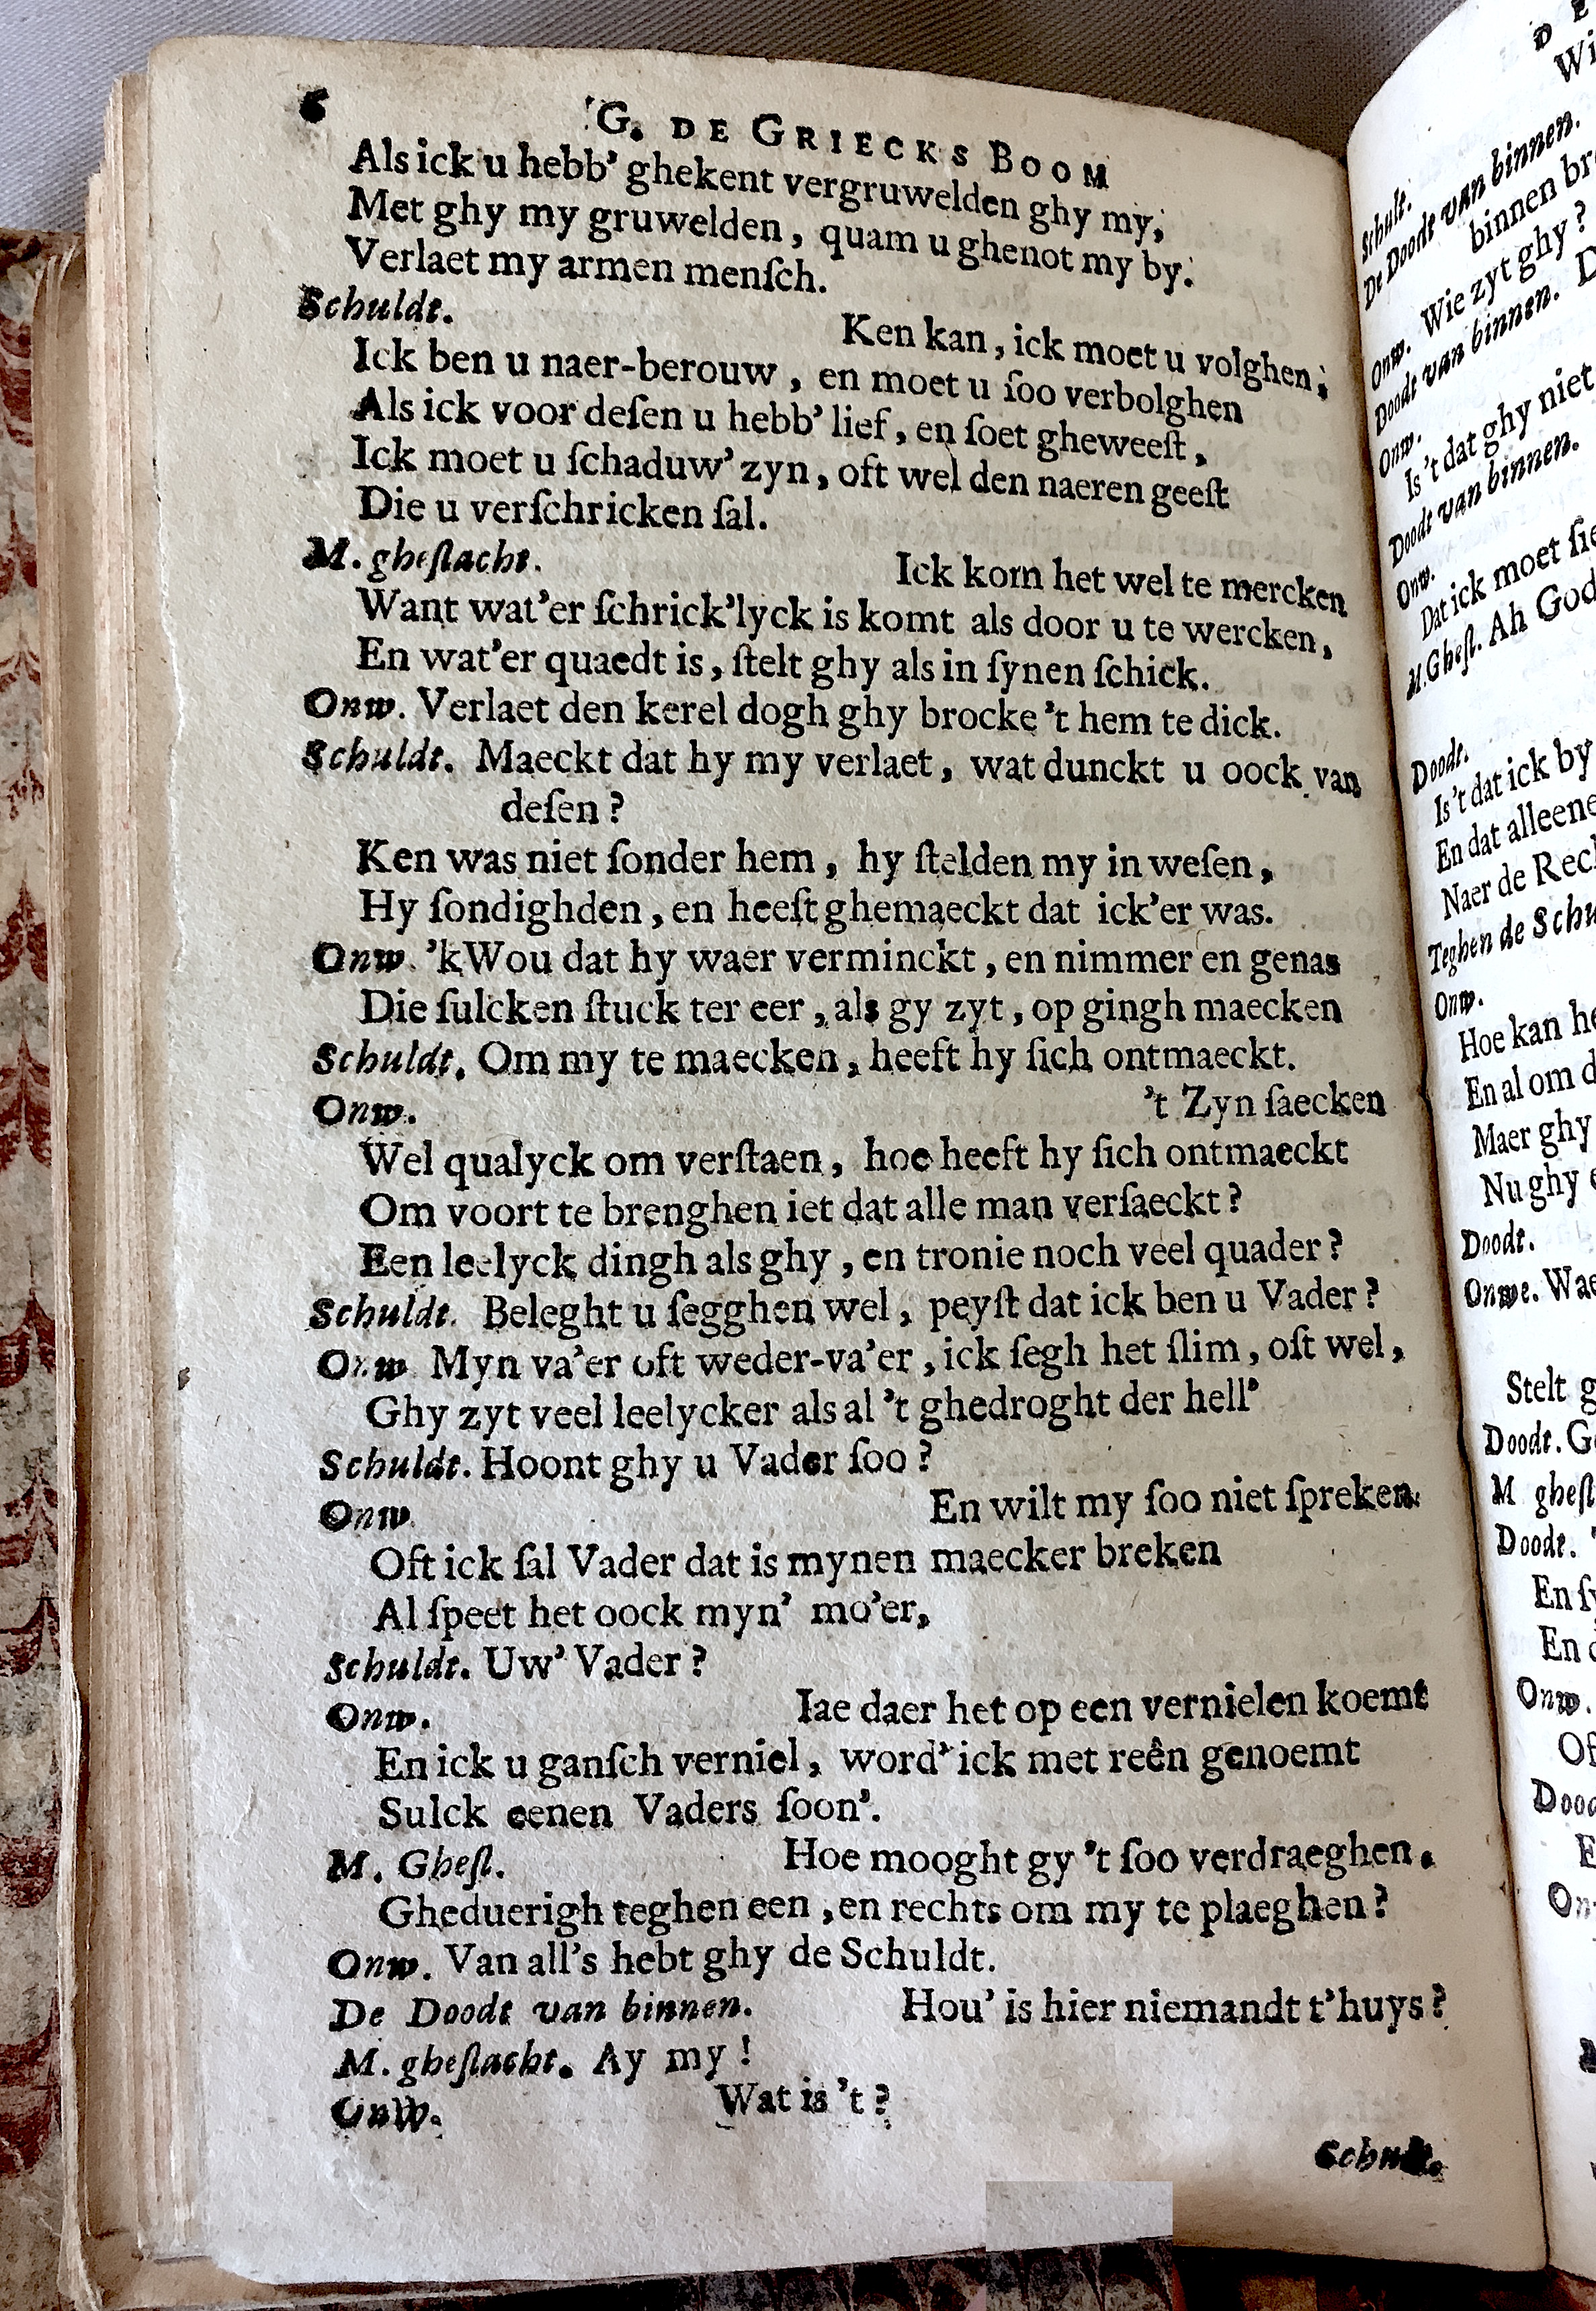 6
G. DE GRIECKS BOOM
Als ick u hebb' ghekent vergruwelden ghy my,
Met ghy my gruwelden, quam u ghenot my by.
Verlaet my armen menſch.
Schuldt.
Ken kan, ick moet u volghen,
Ick ben u naer-berouw, en moet u ſoo verbolghen
Als ick voor deſen u hebb' lief, en ſoet gheweeſt,
Ick moet u ſchaduw' zyn, oft wel den naeren geeſt
Die u verſchricken ſal.
M. gheſlacht.
Ick kom het wel te mercken
Want wat'er ſchrick'lyck is komt als door u te wercken,
En wat'er quaedt is, ſtelt ghy als in ſynen ſchick.
Onw. Verlaet den kerel dogh ghy brocke 't hem te dick.
Schuldt. Maeckt dat hy my verlaet, wat dunckt u oock van
deſen?
Ken was niet ſonder hem, hy ſtelden my in weſen,
Hy ſondighden, en heeft ghemaeckt dat ick'er was.
Onw. 'k Wou dat hy waer verminckt, en nimmer en genas
Die ſulcken ſtuck ter eer, als gy zyt, op gingh maecken
Schuldt. Om my te maecken, heeft hy ſich ontmaeckt.
Onw.
't Zyn ſaecken
Wel qualyck om verſtaen, hoe heeft hy ſich ontmaeckt
Om voort te brenghen iet dat alle man verſaeckt?
Een leelyck dingh als ghy, en tronie noch veel quader?
Schuldt. Beleght u ſegghen wel, peyſt dat ick ben u Vader?
Onw. Myn va'er oft weder-va'er, ick ſegh het ſlim, oft wel,
Ghy zyt veel leelycker als al 't ghedroght der hell'
Schuldt. Hoont ghy u Vader ſoo?
Onw
En wilt my ſoo niet ſpreken.
Oft ick ſal Vader dat is mynen maecker breken
Al ſpeet het oock myn' mo'er,
Schuldt. Uw' Vader?
Onw.
Iae daer het op een vernielen koemt
En ick u ganſch verniel, word' ick met reên genoemt
Sulck eenen Vaders ſoon'.
M. Gheſl.
Hoe mooght gy 't ſoo verdraeghen.
Gheduerigh teghen een, en rechts om my te plaeghen?
Onw. Van all's hebt ghy de Schuldt.
De Doodt van binnen.
Hou' is hier niemandt t'huys?
M. gheſlacht. Ay my!
OnW.
Wat is 't?
Schult.
D E
Wi
Schult.
De Doodt van binnen.
binnen br
Onw. Wie zyt ghy?
Doodt van binnen. D
Onw.
Is 't dat ghy niet
Doodt van binnen.
Onw.
Dat ick moet ſie
M. Gheſl. Ah God
Doodt.
Is't dat ick by
En dat alleene
Naer de Rech
Teghen de Schu
Onw.
Hoe kan he
En al om d
Maer ghy
Nu ghy e
Doodt.
Onwe. Wae
Stelt g
Doodt. G
M gheſl
Doodt.
En ſy
En
Onw.
Of
Dood
E
On